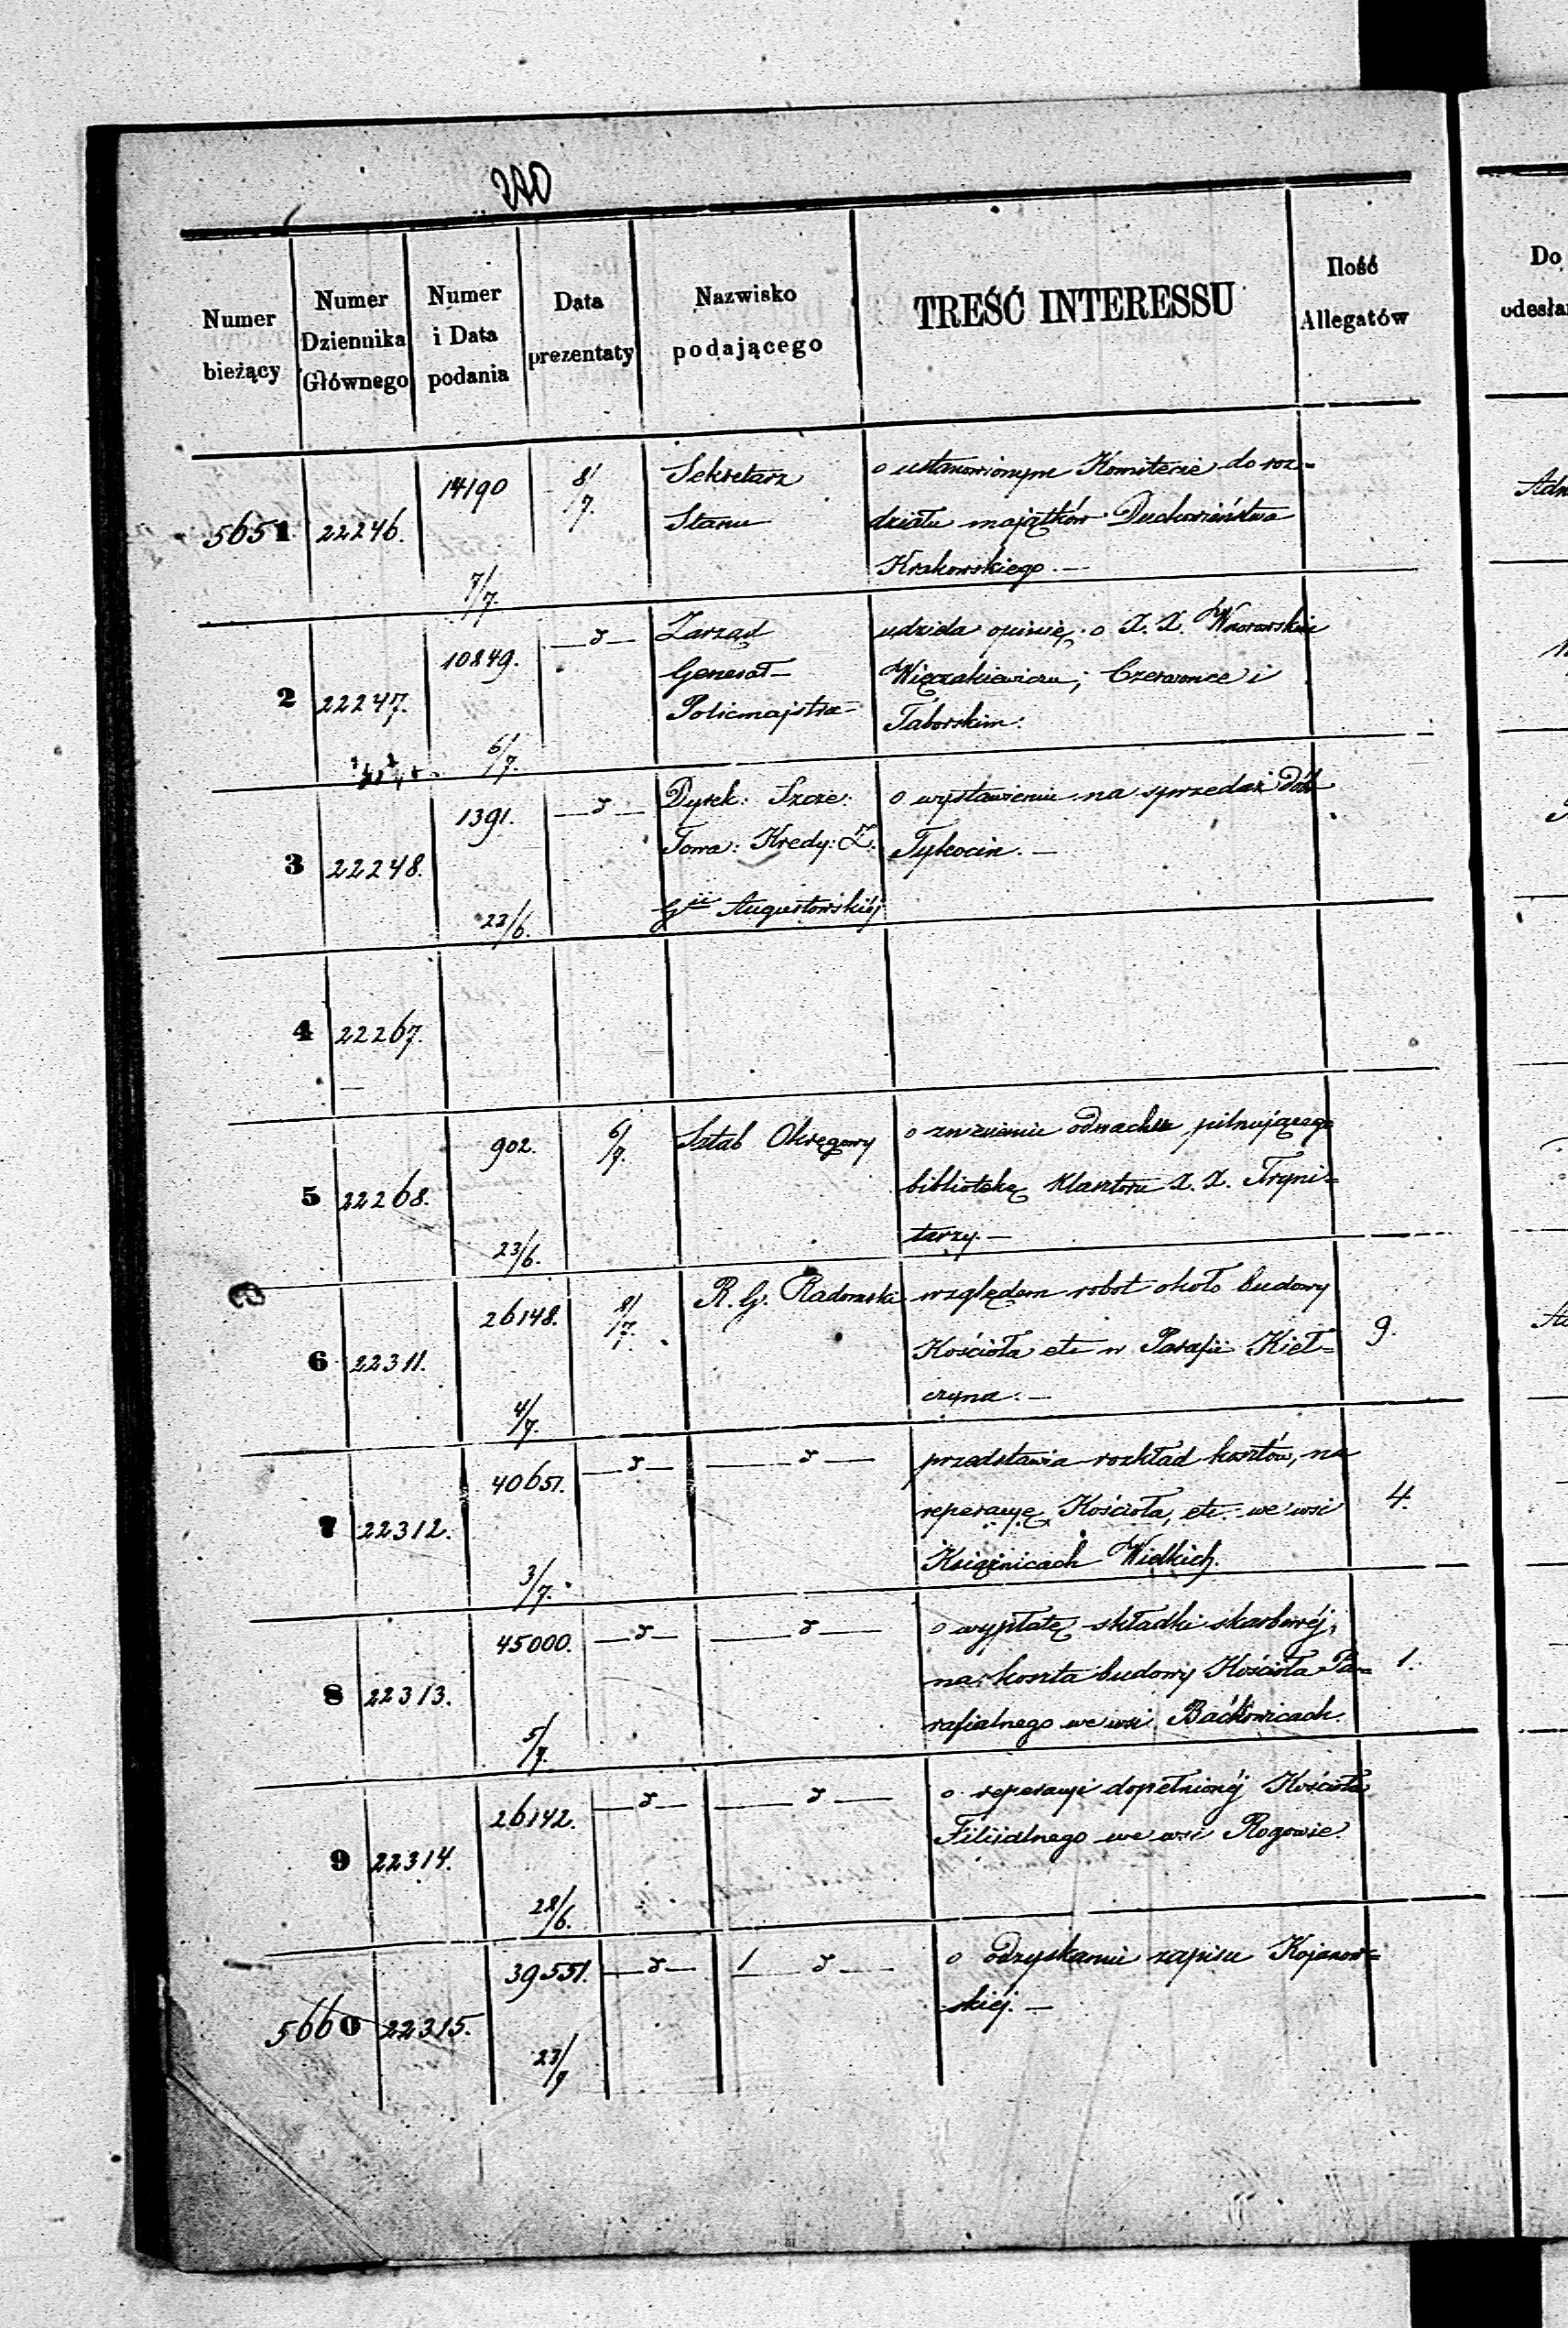 220
Numer bieżący
Numer Dziennika Głównego
Numer i Data podania
Data prezentaty
Nazwisko podającego
TREŚĆ INTERESSU
Ilość Allegatów
Do
5651. 22246. 14190 7/7. 8/7. Sekretarz
Stanu
o ustanowionym Komitecie do roz=
działu majątków Duchowieństwa
Krakowskiego. —
2 22247. 10849. 6/7. —d— Zarząd
Generał-
Policmajstra-
udziela opinię o X. X.
Czerwonce i
Taborskim.
3 22248. 1391. 23/6. —d— Dyrek: Szcze:
Towa: Kredy: Z.
Gii Augustowskiéj
o wystawieniu na sprzedaż Dóbr
Tykocin. —
4 22267.
5 22268. 902. 23/6. 6/7. Sztab Okręgowy
o zniesienie odwachu pilnującego
bibliotekę Klasztoru X. X. Tryni=
tarzy. —
6 22311. 26148. 4/7. 8/7. R. G. Radomski
względem robot około budowy
Kościoła etc w Parafii Kieł=
czyna. —
9.
7 22312. 40651. 3/7. —d— —d—
przedstawia rozkład kosztów, na
reperacyę Kościoła, etc. we wsi
Książnicach Wielkich.
4.
8 22313. 45000. 5/7. —d— —d—
o wypłatę składki skarbowéj,
na koszta budowy Kościoła Pa=
rafialnego we wsi Baćkowicach.
1.
9 22314. 26142. 28/6. —d— —d—
o reperacyi dopełnionéj Kościoła
Filijalnego we wsi Rogowie.
5660 22315. 39551. —d— —d—
o odzyskanie zapisu Kojanow=
skiéj. —